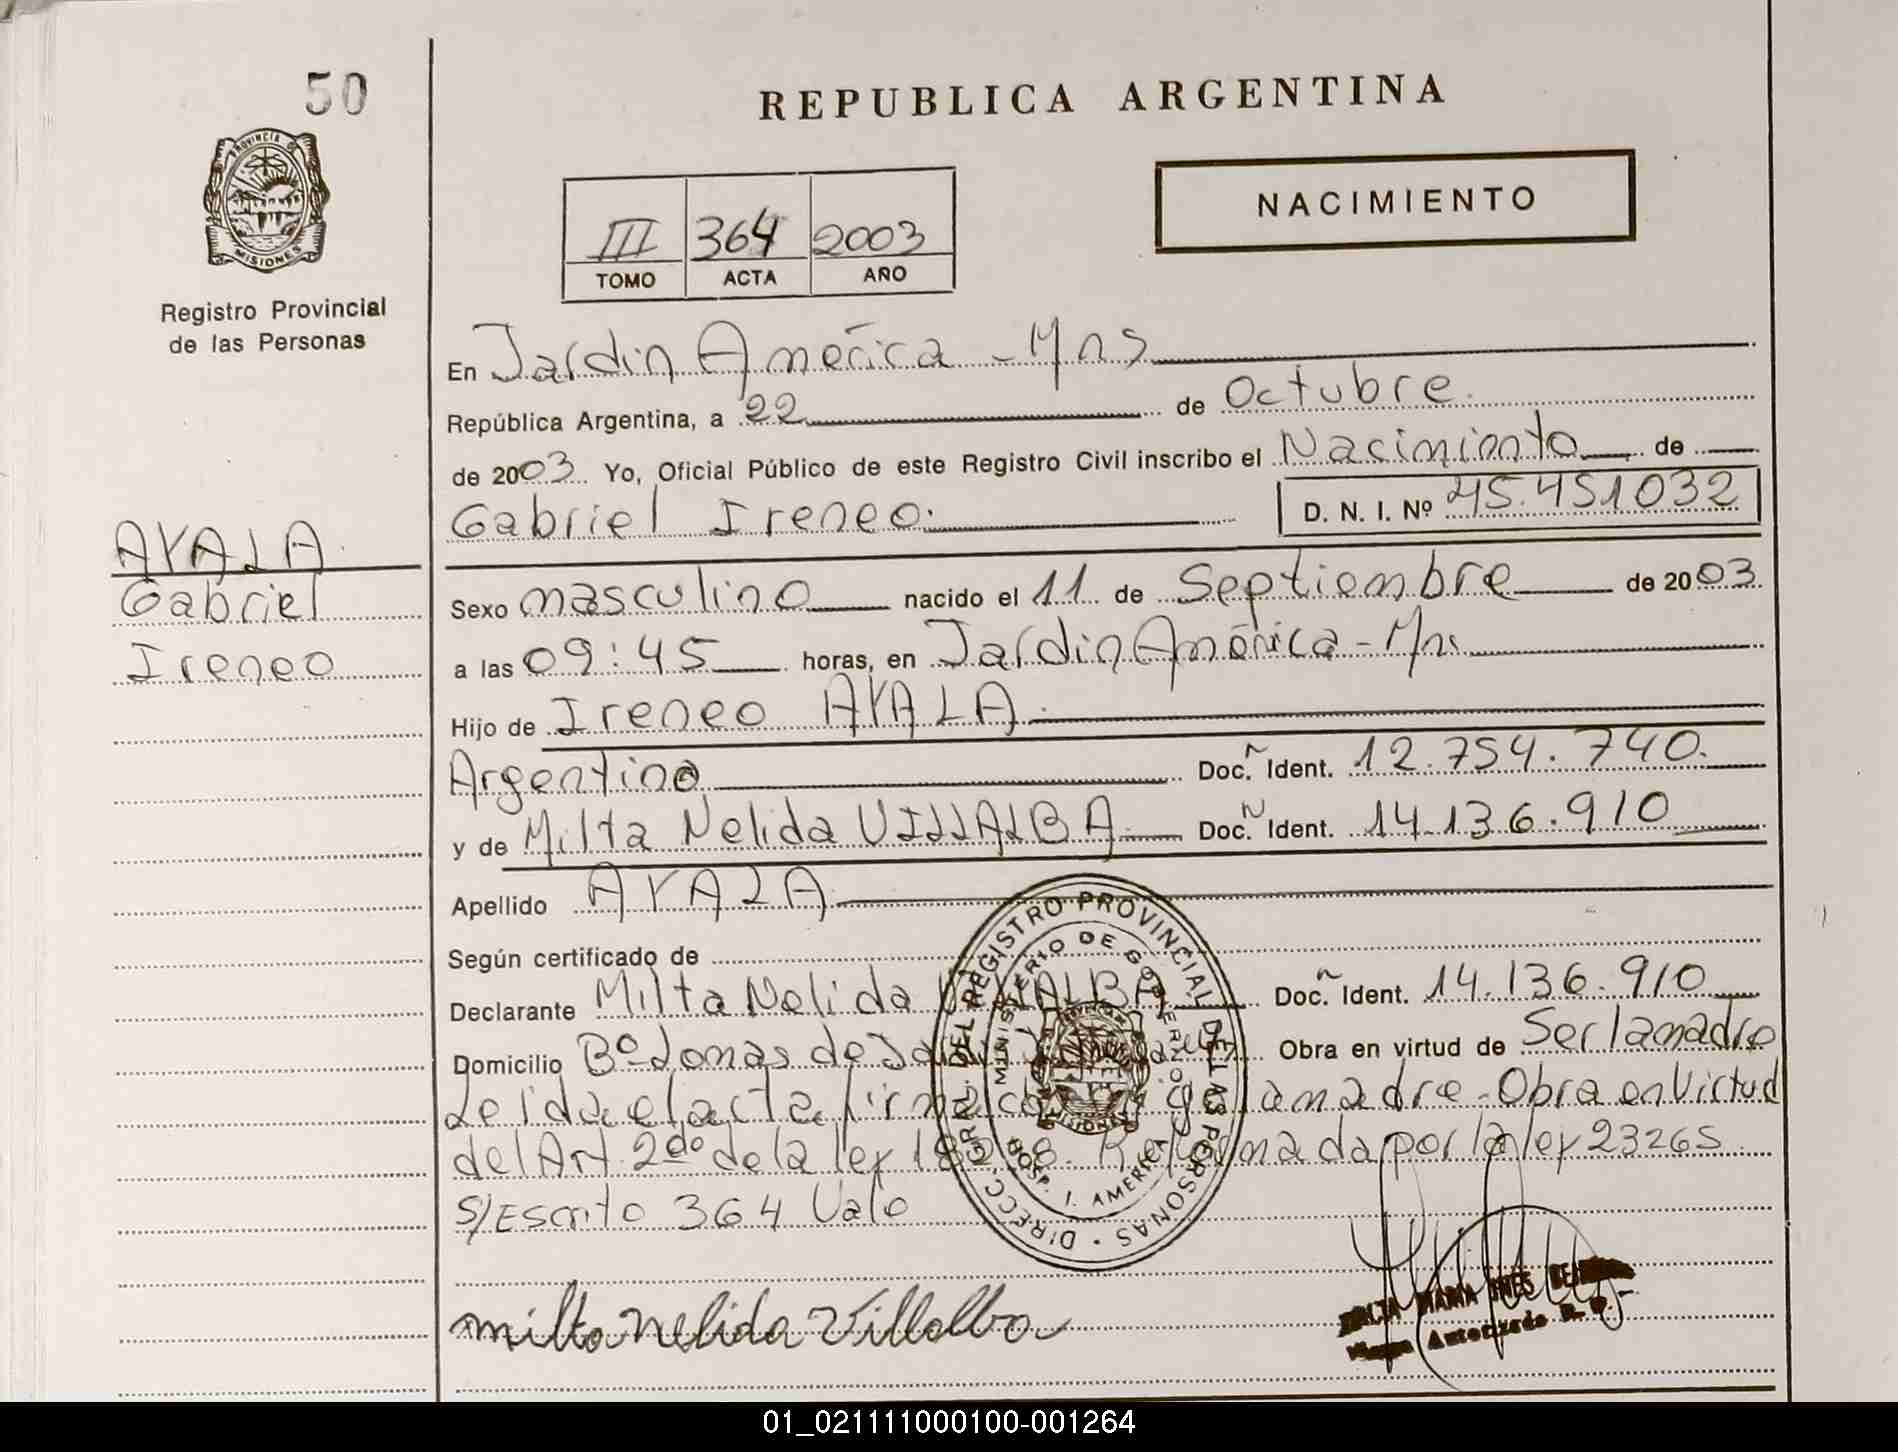 50
REPUBLICA ARGENTINA
PROVINCIA DE
MISIONES
Registro Provincial
de las Personas
NACIMIENTO
III 364 2003
TOMO ACTA AÑO
En Jardin América - Mns
República Argentina, a 22 de Octubre.
de 2003. Yo, Oficial Público de este Registro Civil inscribo el Nacimiento de
Gabriel Ireneo. D. N. I. Nº 45.451032
AYALA
Gabriel
Ireneo
Sexo masculino nacido el 11 de Septiembre de 2003.
a las 09:45 horas, en Jardin América - Mns
Hijo de Ireneo AYALA
Argentino Doc. Ident. 12.754.740.
y de Milta Nelida VILLALBA Doc. Ident. 14.136.910
Apellido AYALA
Según certificado de
Declarante Milta Nelida VILLALBA Doc. Ident. 14.136.910
Domicilio Bº Lomas de Obra en virtud de Ser la madre
Leida el acta firma la madre - Obra en Virtud
del Art. 2do de la ley por la ley 23265.
S/Escrito 364 Vale
DIRECC. GRAL. DEL REGISTRO PROVINCIAL DE LAS PERSONAS
MINISTERIO DE GOBIERNO
HOSP. J. AMERICA
milta Nelida Villalba
MARIA INES
Autorizado
01_021111000100-001264